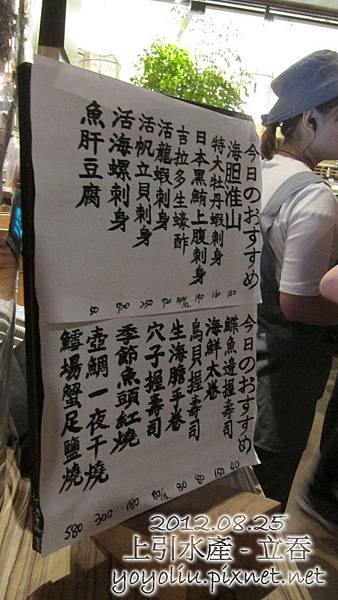 今日のおすすめ
海胆淮山
特大牡丹蝦刺身
日本黑鮪上腹刺身
吉拉多生蠔酢
活龍蝦刺身
活帆立貝刺身
活海螺刺身
魚肝豆腐
今日のおすすめ
鰈魚邊握壽司
海鮮太卷
鳥貝握壽司
生海膽手卷
穴子握壽司
季節魚頭紅燒 180
壺鯛一夜干燒 300
鱈場蟹足鹽燒 580
2012.08.25
上引水產-立吞
yoyoliu.pixnet.net